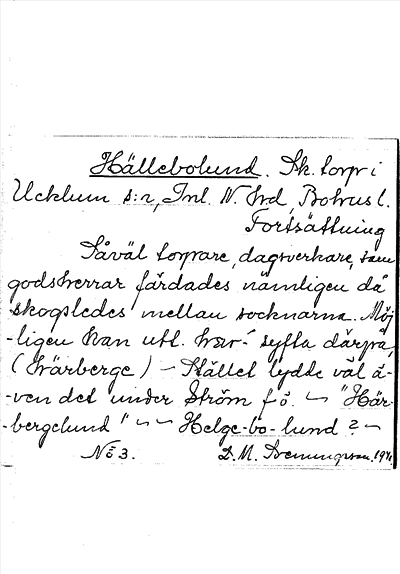 Hällebolund. Sk. torp i
Ucklum s:n, Inl. N. Hrd, Bohus l.
Fortsättning
Såväl torpare, dagsverkare, som
godsherrar färdades nämligen då
skogsledes mellan socknarna. Möj-
-ligen kan utt. här- syfta därpå,
(härberge) - Stället lydde väl ä-
-ven det under Ström f.ö. - "Här-
bergelund" - - Helge-bo-lund? -
No 3. D. M. Svenungsson. 1971.